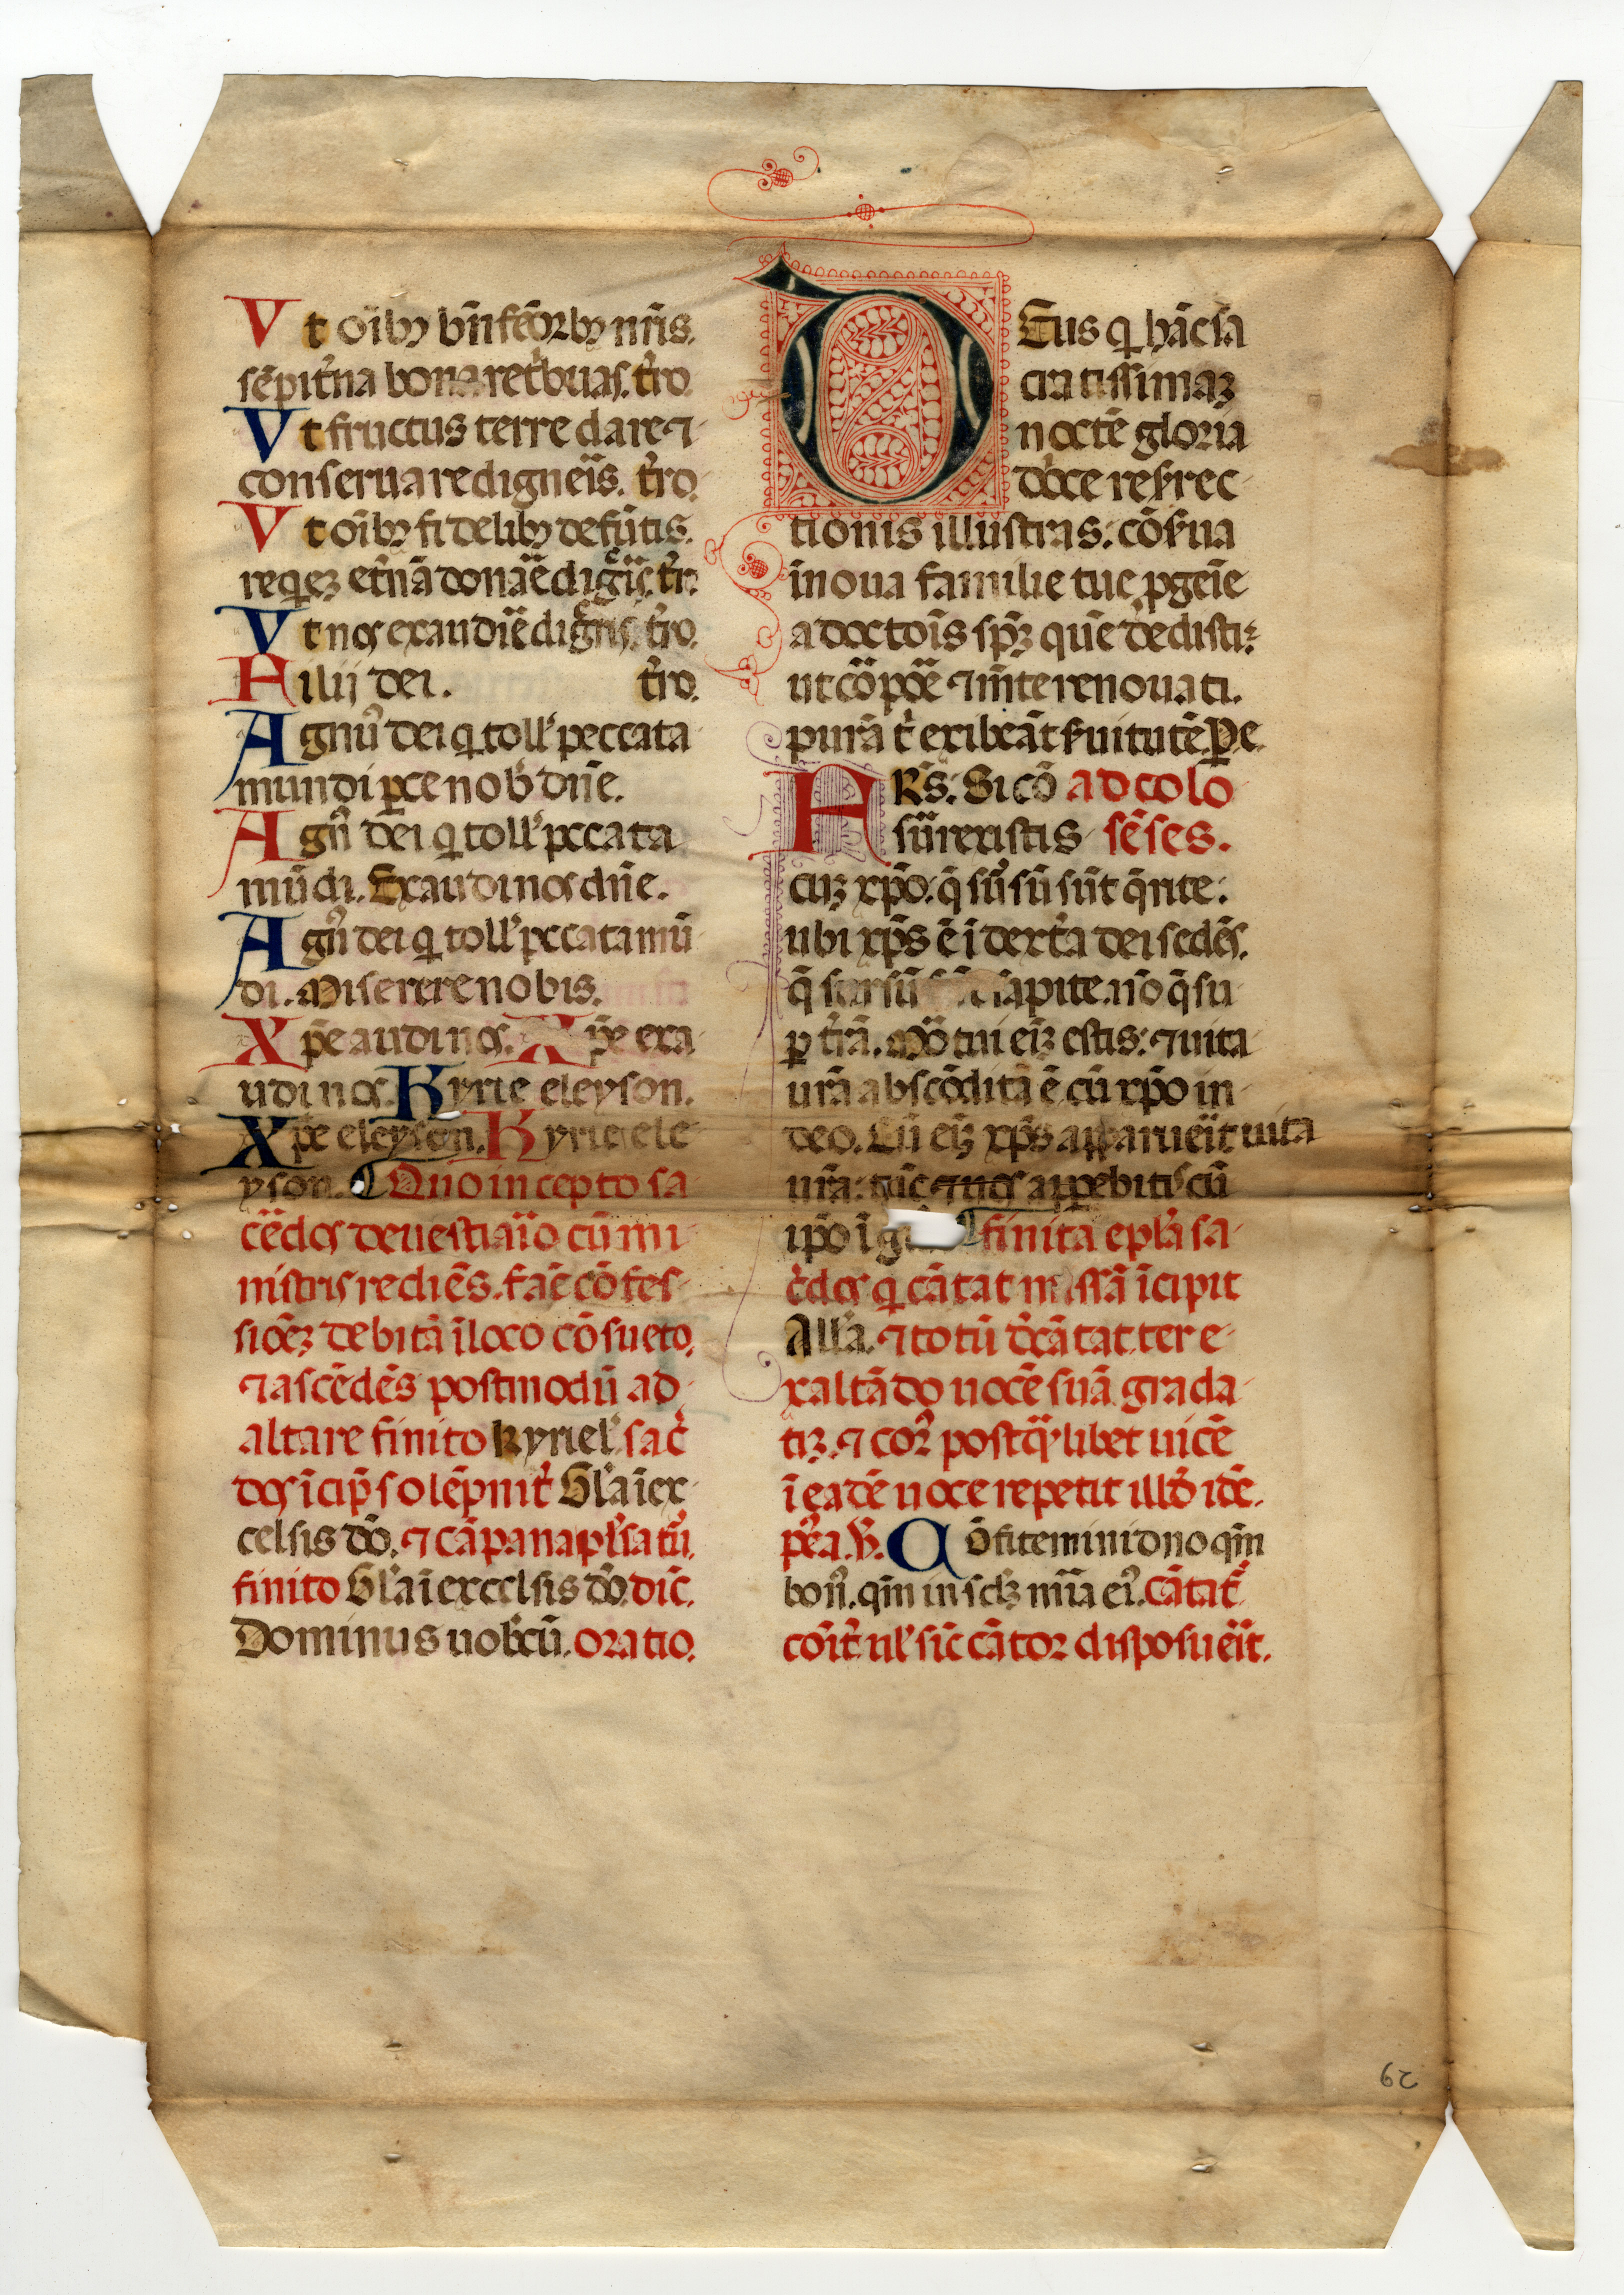 Vt oīibꝫ bn̄fc̄orbꝫ nr̄is.
sēpit̾na bona ret̾buas. t̾ro
Vt fructus terre dare ⁊
conseruare digneīs. t̾ro.
Vt oīibꝫ fidelibꝫ defūtis.
req̇eꝫ et̾nā donāē dignēis. t̾r.
Vt nos exaudīē dignēis. t̾ro.
Filij dei. t̾ro.
Agnꝰ dei q̇ toll̾ peccata
mundi ꝑce nob̾ dn̄e.
Agn̄ dei q̇ toll̾ pccata
mūdi. Exaudi nos dn̄e.
Agn̄ dei q̇ toll̾ pccata mū
di. Miserere nobis.
Xp̄e audi nos. Xp̄e exa
udi nos. Kyrie eleyson.
Xp̄e eleyson. Kyrie ele
yson. ¶ Quo incepto sa
cēdos de uestiaīo cū mi
nistris rediēs. fac̄ cōfes
sioēꝫ debitā ī loco cōsueto.
⁊ ascēdēs postmodū ad
altare finito kyriel̾ sac̾
dos īcip̄ solēpnit̾ Gl̾a ī ex
celsis dō. ⁊ cāpana pl̾satꝰ.
finito Gl̾a ī excelsis dō. dic̄.
Dominus uob̾cū. oratio.
DEus q̇ hāc sa
cratissimaꝫ
noctē gloria
dn̄ice resr̄rec
tionis illustras: cōs̄ua
ī noua familie tue ꝓgeīe
adoctoīs sp̄ꝫ quē dedisti:
ut cōpoē ⁊ mn̄te renouati.
purā t̾ exibeāt s̄uitutē. Per e.
FRs̄: Si cō ad colo
sūrexistis sēses.
cuꝫ xp̄o: q̄ sūsū sūt q̄rite:
ubi xp̄s ē ī dext̾a dei sedēs.
q̄ sursū sapite. nō q̄ su
ꝑ t̾rā. Mō̄tui eīꝫ estis: ⁊ uita
ur̄a abscōdita ē cū xp̄o in
deo. Cū eīꝫ xp̄s apparueīt uita
ur̄a: tūc ⁊ uos appebitis cū
ip̄o ī gl ¶ finita epl̾a sa
c̾dos q̇ cātat missā īcipit
All̾a. ⁊ totū d̾cātat ter e
xaltādo uocē suā grada
tiꝫ. ⁊ corꝰ post q̄libet uicē
ī eadē uoce repetit illd̾ idē.
pēa. V̾. Cōfitemini dno qm̄
bonꝰ. qm̄ in sclꝫ mīa eiꝰ. Cātat̾
cōit̾ ul̾ sic̄ cātor disposueīt.
62